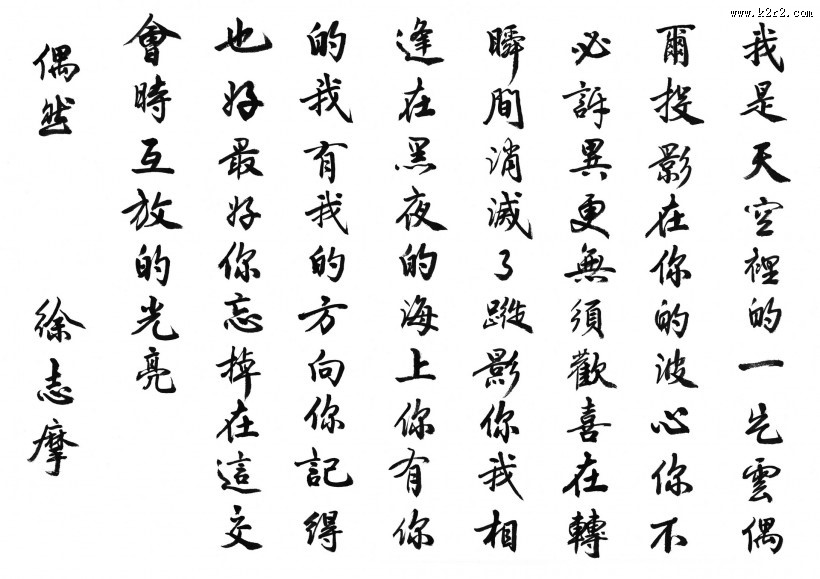 www.k2r2.com
我是天空裡的一片雲偶
爾投影在你的波心你不
必訝異更無須歡喜在轉
瞬間消滅了蹤影你我相
逢在黑夜的海上你有你
的我有我的方向你記得
也好最好你忘掉在這交
會時互放的光亮
偶然 徐志摩